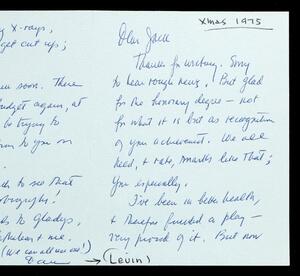 Xmas 1975
Dear Jack
Thanks for writing. Sorry
to hear rough news. But glad
for the honorary degree – not
for what it is but as recognition
of your achievement. We all
need, & rate, smarks like that;
you especially.
I've been in better health,
& therefore finished a play –
very proud of it. But now
y X-rays,
get cut up;
soon. There
budget again, at
be trying to
to you on
to see that
to Gladys,
(We can all use one!)
Dan
→ (Levin)